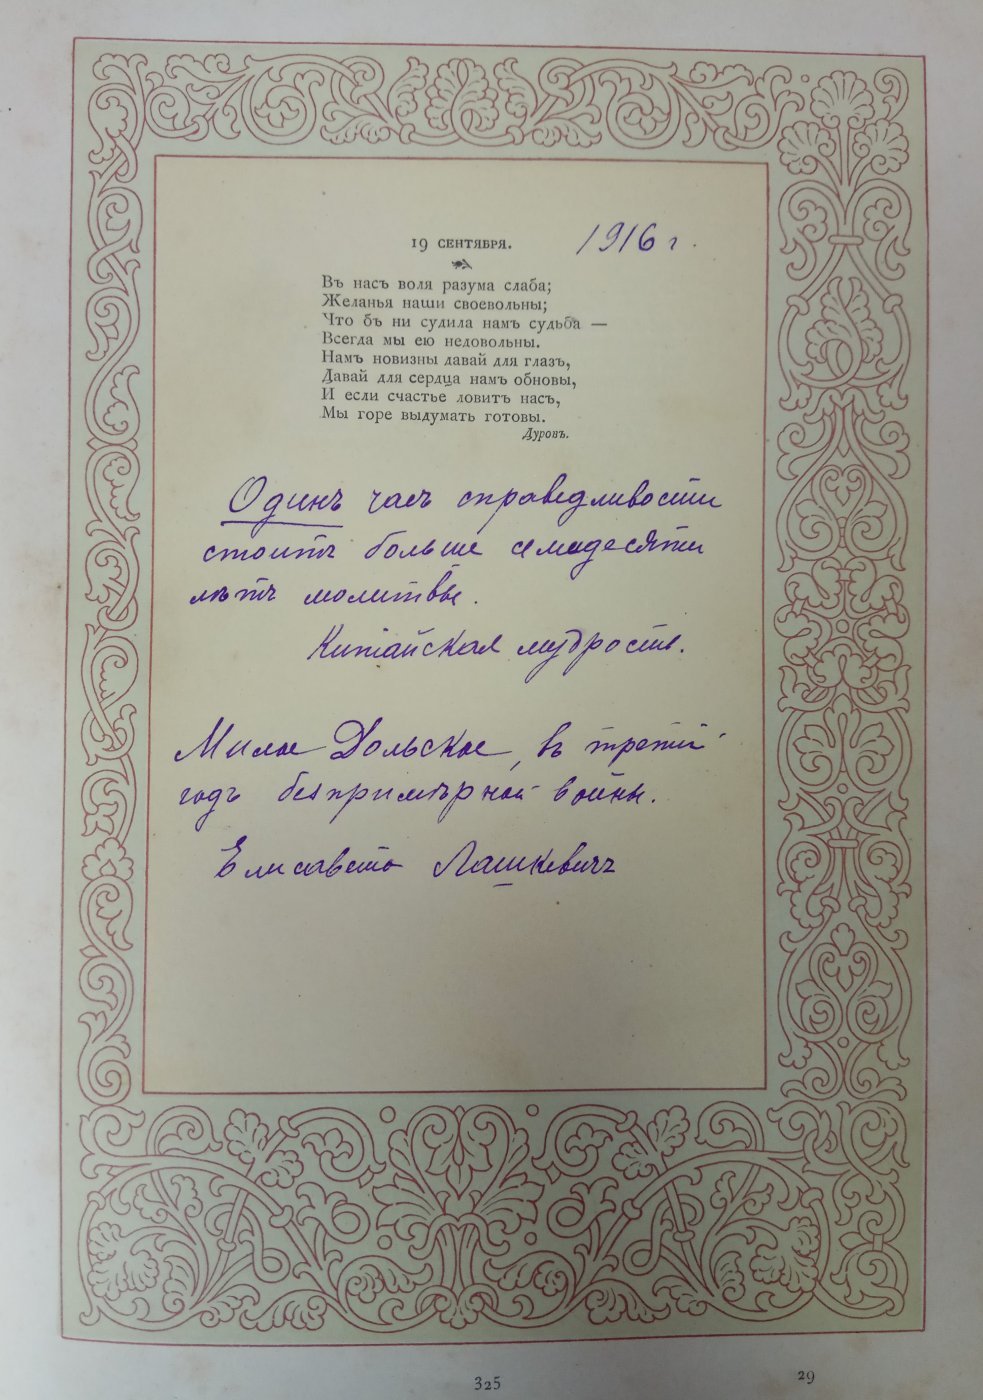 19 СЕНТЯБРЯ.
1916 г.
Въ насъ воля разума слаба;
Желанья наши своевольны;
Что бъ ни судила намъ судьба —
Всегда мы ею недовольны.
Намъ новизны давай для глазъ,
Давай для сердца намъ обновы,
И если счастье ловитъ насъ,
Мы горе выдумать готовы.
Дуровъ.
Одинъ часъ справедливости
стоитъ больше семидесяти
лѣтъ молитвы.
Китайская мудрость.
Милое Дольское, въ третій
годъ безпримѣрной войны.
Елисавета Лашкевичъ
325
29